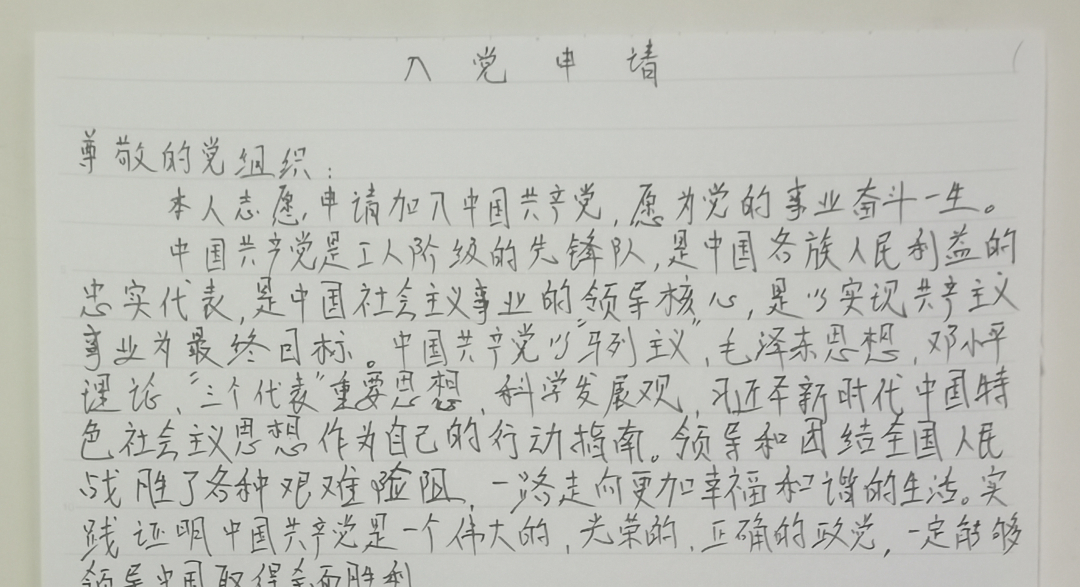 入党申请
尊敬的党组织:
本人志愿,申请加入中国共产党,愿为党的事业奋斗一生。
中国共产党是工人阶级的先锋队,是中国各族人民利益的
忠实代表,是中国社会主义事业的领导核心,是以实现共产主义
事业为最终目标。中国共产党以“马列主义”,毛泽东思想,邓小平
理论,“三个代表”重要思想,科学发展观,习近平新时代中国特
色社会主义思想作为自己的行动指南。领导和团结全国人民
战胜了各种艰难险阻,一路走向更加幸福和谐的生活。实
践证明中国共产党是一个伟大的,光荣的,正确的政党,一定能够
领导中国取得全面胜利